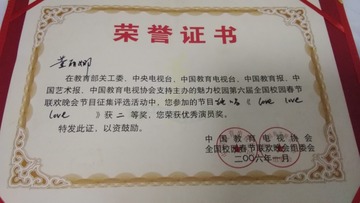 荣誉证书
在教育部关工委、中央电视台、中国教育电视台、中国教育报、中
国艺术报、中国教育电视协会支持主办的魅力校园第六届全国校园春节
联欢晚会节目征集评选活动中，您参加的节目《love love
love 》获二等奖，您荣获优秀演员奖。
特发此证，以资鼓励。
中国教育电视协会
全国校园春节联欢晚会组委会
二00六年一月